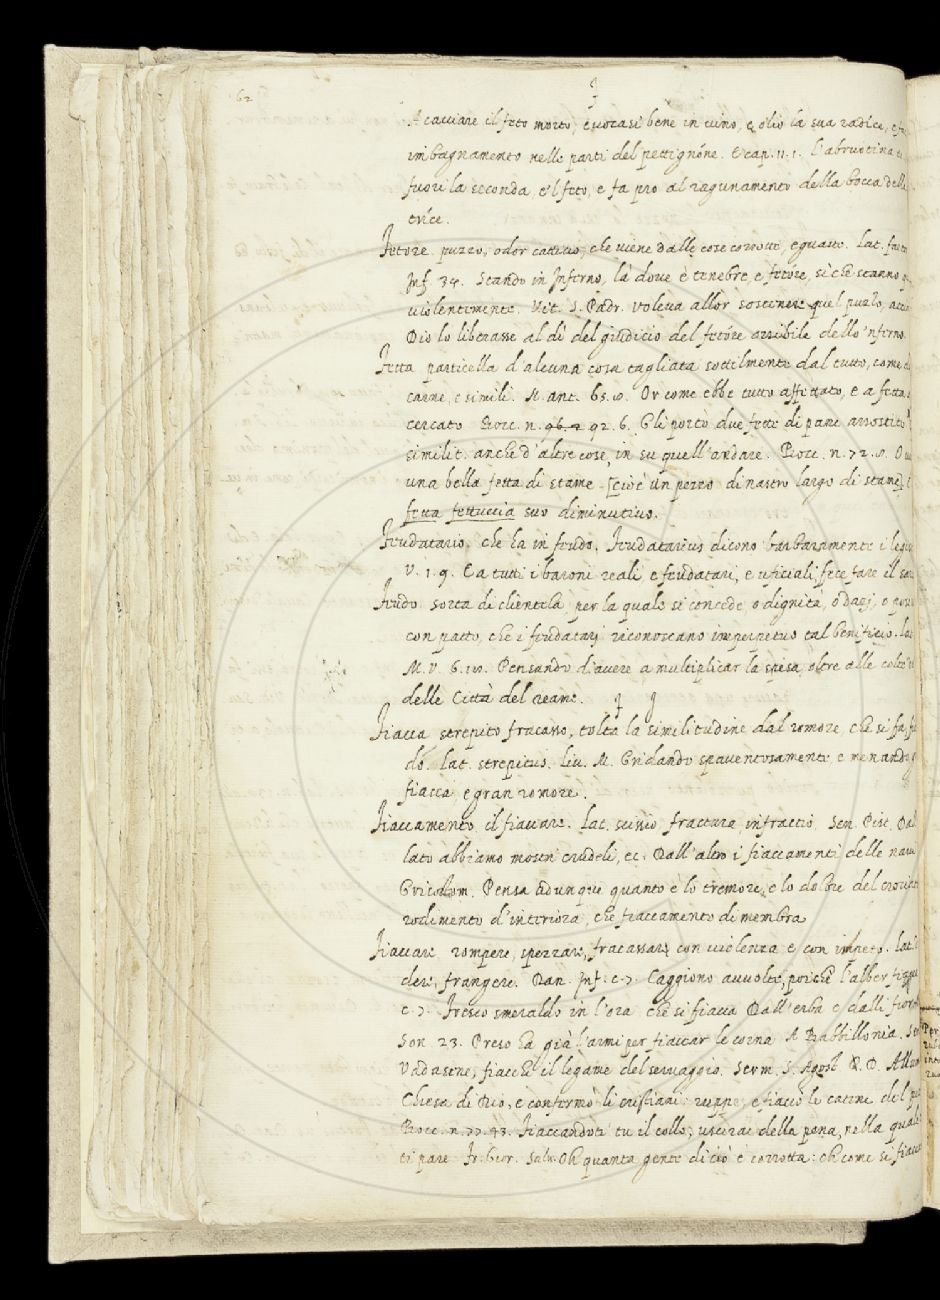 62
F
A cacciare il feto morto, cuocasi bene in uino, e olio la sua radice, e
imbagnamento nelle parti del pettignóne. E cap. 11. 1. l'abruotina
fuori la seconda, e'l feto, e fa pro al ragunamento della bocca della
trice.
Fetore. puzzo, odor cattiuo, che uiene dalle cose corrotte, e guaste. Lat.
Inf. 34. Stando in Inferno, là doue è tenebre, e fetóre, sì che stanno
uiolentemente. Vit. S. Padr. voleua allór sostenere quel puzzo,
Dio lo liberasse al dì del giudicio del fetóre orribile dello 'nferno.
Fetta particella d'alcuna cosa tagliata sottilmente dal tutto, come
carne, e simili. M. ant. Or come ebbe tutto affettato, e a fetta
cercato Bocc. n. 92. 6. Gli portò due fette di pane arrostito
similit. anche d'altre cose in su quell'andare. Bocc. n. 72.
una bella fetta di stame [cioè un pezzo di nastro largo di stame]
fetta fettuccia suo diminutiuo.
Feudatario. che ha in feudo. Feudatarius dicono barbaramente i
V. 1. 9. E a tutti i baroni reali, e feudatari, e uficiali, fece fare il
Feudo sorta di clientela, per la quale si concede, o dignità, ò dazj, o
con patto, che i feudatarj riconoscano imperpetuo tal benificio.
M. V. 6. Pensando d'auere a multiplicar la spesa, oltre alle
delle Città del reame.
F I
Fiacca strepito fracasso, tolta la similitudine dal romore, che si fa,
do. Lat. strepitus. Liu. M. Gridando spauentosamente e menando
fiacca, e gran romore.
Fiaccamento il fiaccare. Lat. fractura, infractio. Sen. Pist.
lato abbiamo mostri crudeli, ec. Dall'altro i fiaccamenti delle
Pensa adunque quanto è lo tremore, e lo dolore del
rodimento d'interiora, che fiaccamento di membra
Fiaccare rompere, spezzare, fracassare con uiolenza e con impeto.
frangere. Dan. Inf. c. 7. Caggiono auuolte, poichè l'alber fiacca
c. 7. Fresco smeraldo in l'ora che si fiacca Dall'erba e dalli fior
Son. 23. Preso ha già l'armi per fiaccar le corna A Babbillonia.
fiacchè il legame del seruaggio. Serm. S. Agost.
Chiesa di Dio, e confermò li cristiani: ruppe, e fiaccò le catene del
Bocc. n. 77. 43. Fiaccandoti tu il collo, uscirai della pena, nella quale
ti pare. Fr. Gior. Salu. Oh quanta gente di ciò è corrotta: oh come si